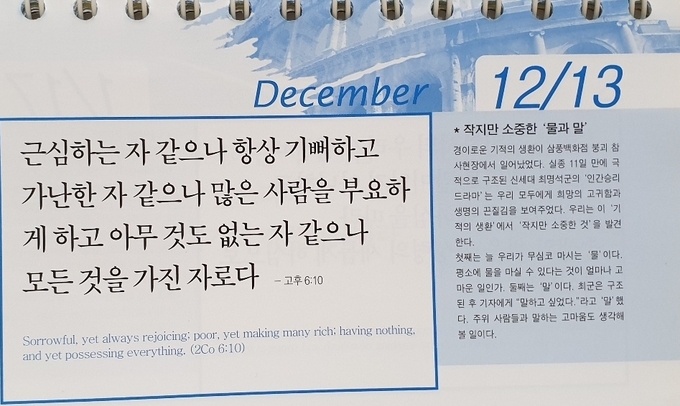 December
12/13
근심하는 자 같으나 항상 기뻐하고
가난한 자 같으나 많은 사람을 부요하
게 하고 아무 것도 없는 자 같으나
모든 것을 가진 자로다 – 고후 6:10
Sorrowful, yet always rejoicing; poor, yet making many rich; having nothing,
and yet possessing everything. (2Co 6:10)
* 작지만 소중한 '물과 말'
경이로운 기적의 생환이 삼풍백화점 붕괴 참
사현장에서 일어났었다. 실종 11일 만에 극
적으로 구조된 신세대 최명석군의 '인간승리
드라마'는 우리 모두에게 희망의 고귀함과
생명의 끈질김을 보여주었다. 우리는 이 '기
적의 생환'에서 '작지만 소중한 것'을 발견
한다.
첫째는 늘 우리가 무심코 마시는 '물'이다.
평소에 물을 마실 수 있다는 것이 얼마나 고
마운 일인가. 둘째는 '말'이다. 최군은 구조
된 후 기자에게 "말하고 싶었다."라고 '말'했
다. 주위 사람들과 말하는 고마움도 생각해
볼 일이다.